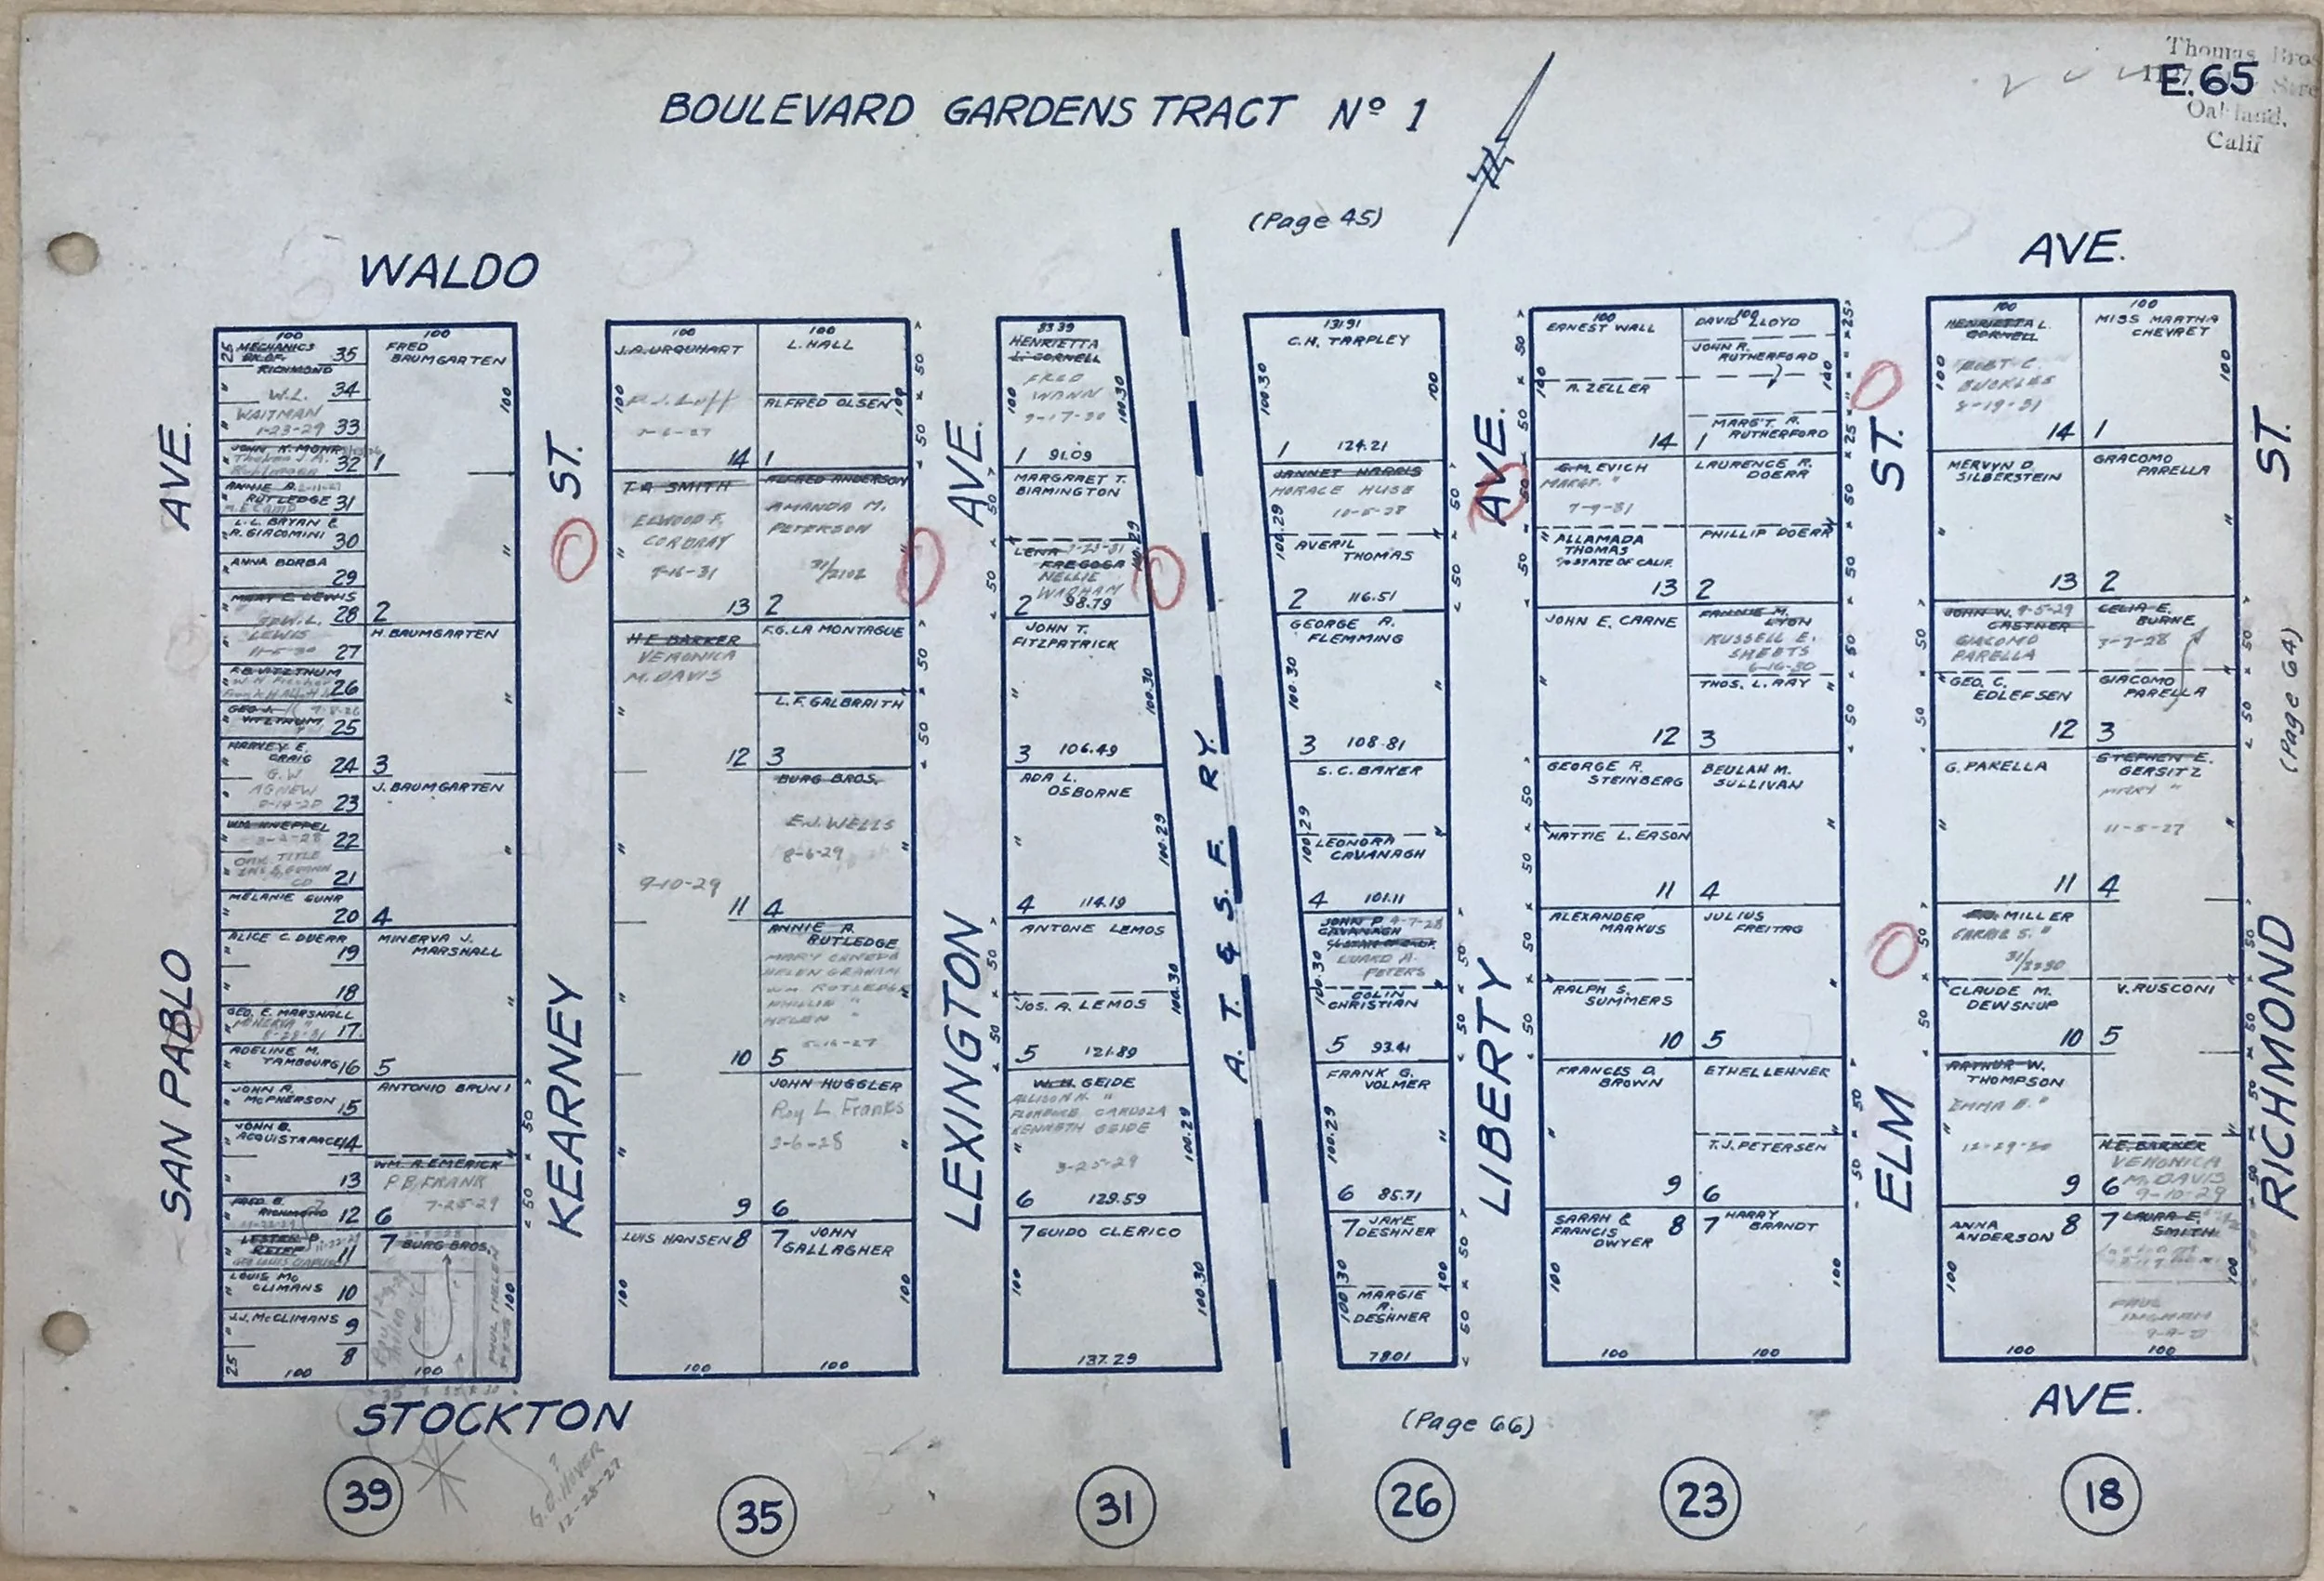 Thomas Bros
E.65
Oakland,
Calif
BOULEVARD GARDENS TRACT Nº 1
(Page 45)
WALDO
AVE.
SAN PABLO
AVE.
100
25
MECHANICS
BK. OF
RICHMOND
35
W.L.
34
WAITMAN
1-23-29
33
JOHN K. MOHR
32
ANNIE R.
RUTLEDGE
31
L.L. BRYAN &
R. GIACOMINI
30
ANNA BORBA
29
MARY E. LEWIS
28
LEWIS
27
F.B. VITZTHUM
26
GEO. J.
VITZTHUM
25
HARVEY E.
CRAIG
24
G.W.
AGNEW
23
WM. KNEPPEL
22
21
MELANIE GUHR
20
ALICE C. DUERR
19
18
GEO. E. MARSHALL
MINERVA "
17
ADELINE M.
TAMBOURG
16
JOHN R.
McPHERSON
15
JOHN B.
ACQUISTAPACE
14
13
FRED. B.
RICHMOND
12
LESTER P.
REIFF
11
LOUIS Mc
CLIMANS
10
J.J. McCLIMANS
9
8
25
100
100
FRED
BAUMGARTEN
100
1
2
H. BAUMGARTEN
3
J. BAUMGARTEN
4
MINERVA J.
MARSHALL
5
ANTONIO BRUNI
WM. R. EMERICK
P.B. FRANK
7-25-29
6
7 BURG BROS.
100
100
KEARNEY
ST.
100
J.A. URQUHART
100
14
T.A. SMITH
ELWOOD F.
CORDRAY
9-16-31
13
H.E. BARKER
VERONICA
M. DAVIS
12
9-10-29
11
10
9
LUIS HANSEN 8
100
100
100
L. HALL
ALFRED OLSEN
100
1
ALFRED ANDERSON
AMANDA M.
PETERSON
31/2102
2
F.G. LA MONTAGUE
L.F. GALBRAITH
3
BURG BROS.
E.J. WELLS
8-6-29
4
ANNIE R.
RUTLEDGE
HELEN GRAHAM
WM RUTLEDGE
PHILLIP "
HELEN "
5
JOHN HUGGLER
Roy L. Franks
3-6-28
6
7 JOHN
GALLAGHER
100
100
LEXINGTON
AVE.
83.39
HENRIETTA
L. CORNELL
FRED
WANN
9-17-30
100
100.30
1 91.09
MARGARET T.
BIRMINGTON
100.29
LENA
FREGOSA
NELLIE
WARHAM
2 98.79
JOHN T.
FITZPATRICK
100.30
3 106.49
ADA L.
OSBORNE
100.29
4 114.19
ANTONE LEMOS
100.30
JOS. A. LEMOS
5 121.89
W.H. GEIDE
ALLISON H. "
FLORENCE CARDOZA
KENNETH GEIDE
3-25-29
100.29
6 129.59
7 GUIDO CLERICO
100
100.30
137.29
A. T. & S. F. RY.
131.91
C.H. TARPLEY
100.30
100
1 124.21
JANNET HARRIS
HORACE HUSE
10-5-28
100.29
AVERIL
THOMAS
2 116.51
GEORGE A.
FLEMMING
100.30
3 108.81
S.C. BAKER
100.29
LEONORA
CAVANAGH
4 101.11
JOHN P.
CAVANAGH
PETERS
100.30
COLIN
CHRISTIAN
5 93.41
FRANK G.
VOLMER
100.29
6 85.71
7 JAKE
DESHNER
100.30
100
MARGIE
A.
DESHNER
78.01
LIBERTY
AVE.
100
ERNEST WALL
100
A. ZELLER
14
G.M. EVICH
MARGT. "
7-9-31
ALLAMADA
THOMAS
% STATE OF CALIF.
13
JOHN E. CARNE
12
GEORGE R.
STEINBERG
HATTIE L. EASON
11
ALEXANDER
MARKUS
RALPH S.
SUMMERS
10
FRANCES D.
BROWN
9
SARAH &
FRANCIS
DWYER
8
100
100
100
DAVID LLOYD
JOHN R.
RUTHERFORD
100
MARG'T. R.
RUTHERFORD
1
LAURENCE R.
DOERR
PHILLIP DOERR
2
FANNIE M.
LYON
RUSSELL E.
SHEETS
6-16-30
THOS. L. RAY
3
BEULAH M.
SULLIVAN
4
JULIUS
FREITAG
5
ETHEL LEHNER
T.J. PETERSEN
6
7 HARRY
BRANDT
100
100
ELM
ST.
100
HENRIETTA L.
CORNELL
ROBT C.
BUCKLES
8-19-31
100
14
MERVYN D.
SILBERSTEIN
13
JOHN W. 9-5-29
CASTNER
GIACOMO
PARELLA
GEO. C.
EDLEFSEN
12
G. PARELLA
11
MILLER
CARRIE S. "
CLAUDE M.
DEWSNUP
10
ARTHUR W.
THOMPSON
EMMA B. "
12-29-30
9
ANNA
ANDERSON 8
100
100
100
MISS MARTHA
CHEVRET
100
1
GRACOMO
PARELLA
2
CELIA E.
BURKE
3-7-28
GIACOMO
PARELLA
3
STEPHEN E.
GERSITZ
MARY "
11-5-27
4
V. RUSCONI
5
H.E. BARKER
VERONICA
M. DAVIS
9-10-29
6
7 LAURA E.
SMITH
PAUL
INGHAM
100
100
RICHMOND
ST.
(Page 64)
STOCKTON
AVE.
(Page 66)
G.O. HOVER
12-28-27
39
35
31
26
23
18